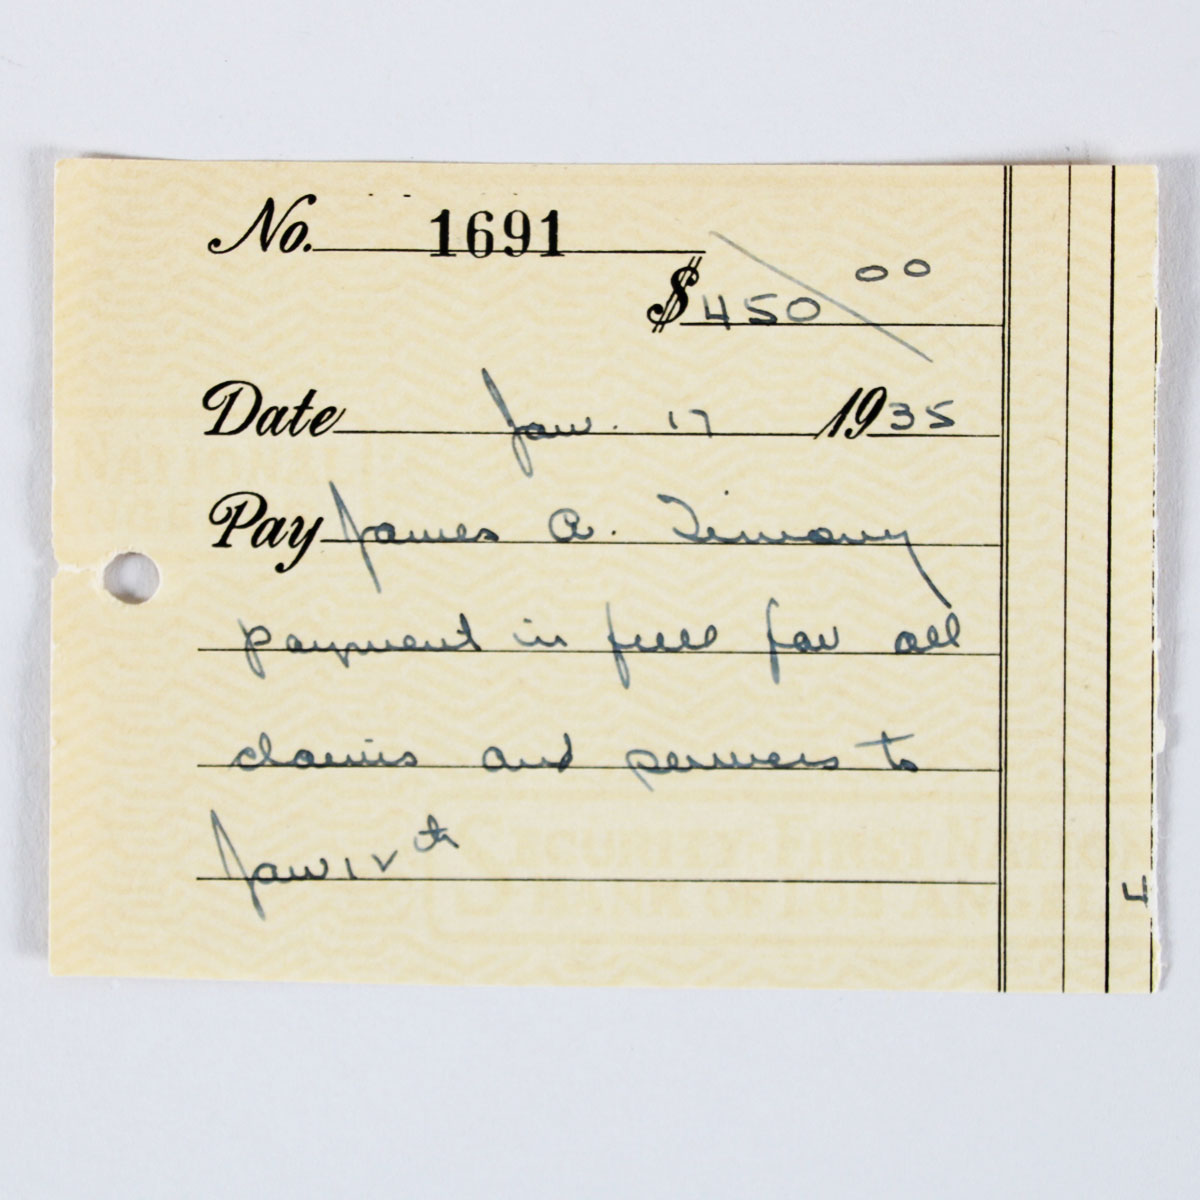 No. 1691
$450 00
Date Jan. 17 1935
Pay James A. Timony
payment in full for all
claims and services to
Jan 12th
SECURITY-FIRST NATION
BANK OF LOS ANGELE
4